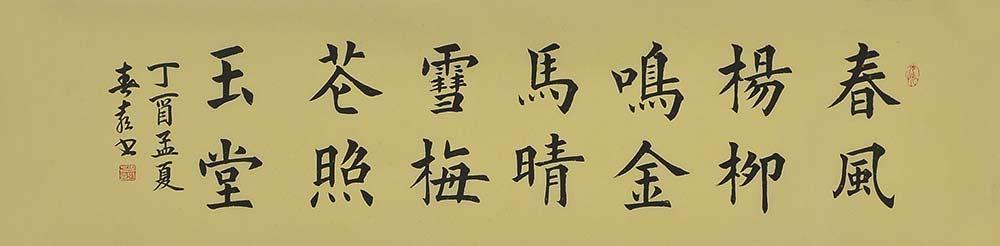 春風
楊柳
鳴金
馬晴
雪梅
芲照
玉堂
丁酉孟夏
春森书